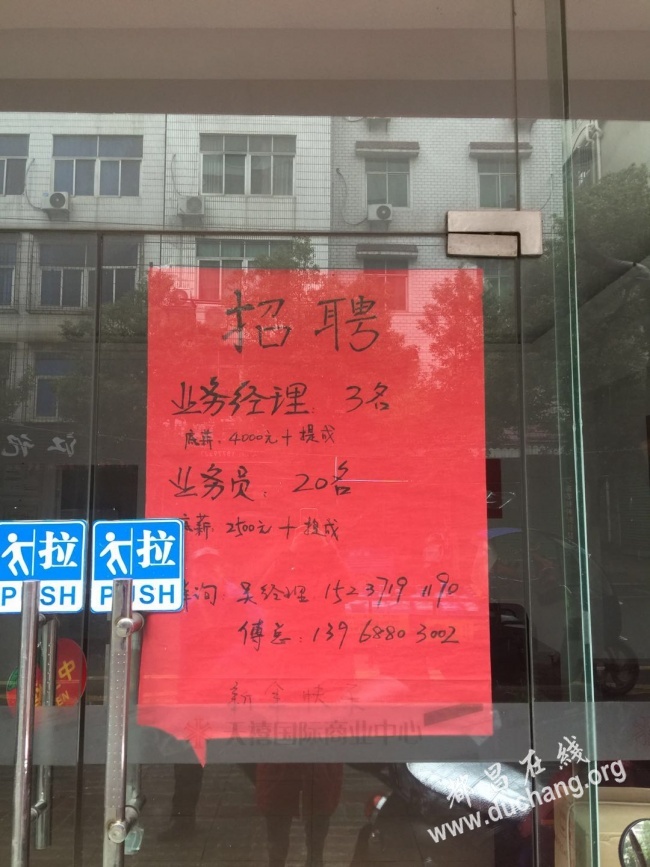 招聘
业务经理：3名
底薪：4000元＋提成
业务员：20名
底薪：2500元＋提成
询 吴经理 15237191190
傅总：13968803002
新年快乐
天禧国际商业中心
拉
PUSH
拉
PUSH
都昌在线
www.duchang.org